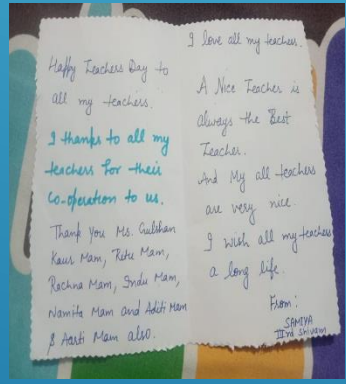 Happy Teachers Day to
all my teachers.
I thanks to all my
teachers for their
Co-operation to us.
Thank You Ms. Gulshan
Kaur Mam, Ritu Mam,
Rachna Mam, Indu Mam,
Namita Mam and Aditi Mam
& Aarti Mam also.
I love all my teachers.
A Nice Teacher is
always the Best
Teacher.
And My all teachers
are very nice.
I wish all my teachers
a long life.
From :
SAMIYA
IInd Shivam